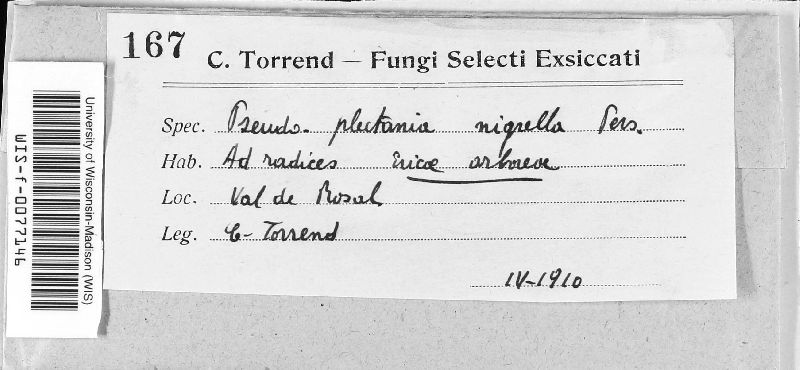 167
C. Torrend — Fungi Selecti Exsiccati
Spec. Pseudo-plectania nigrella Pers.
Hab. Ad radices Ericæ arboreæ
Loc. Val de Rosal
Leg. C. Torrend
IV-1910
University of Wisconsin-Madison (WIS)
WIS-f-0077146